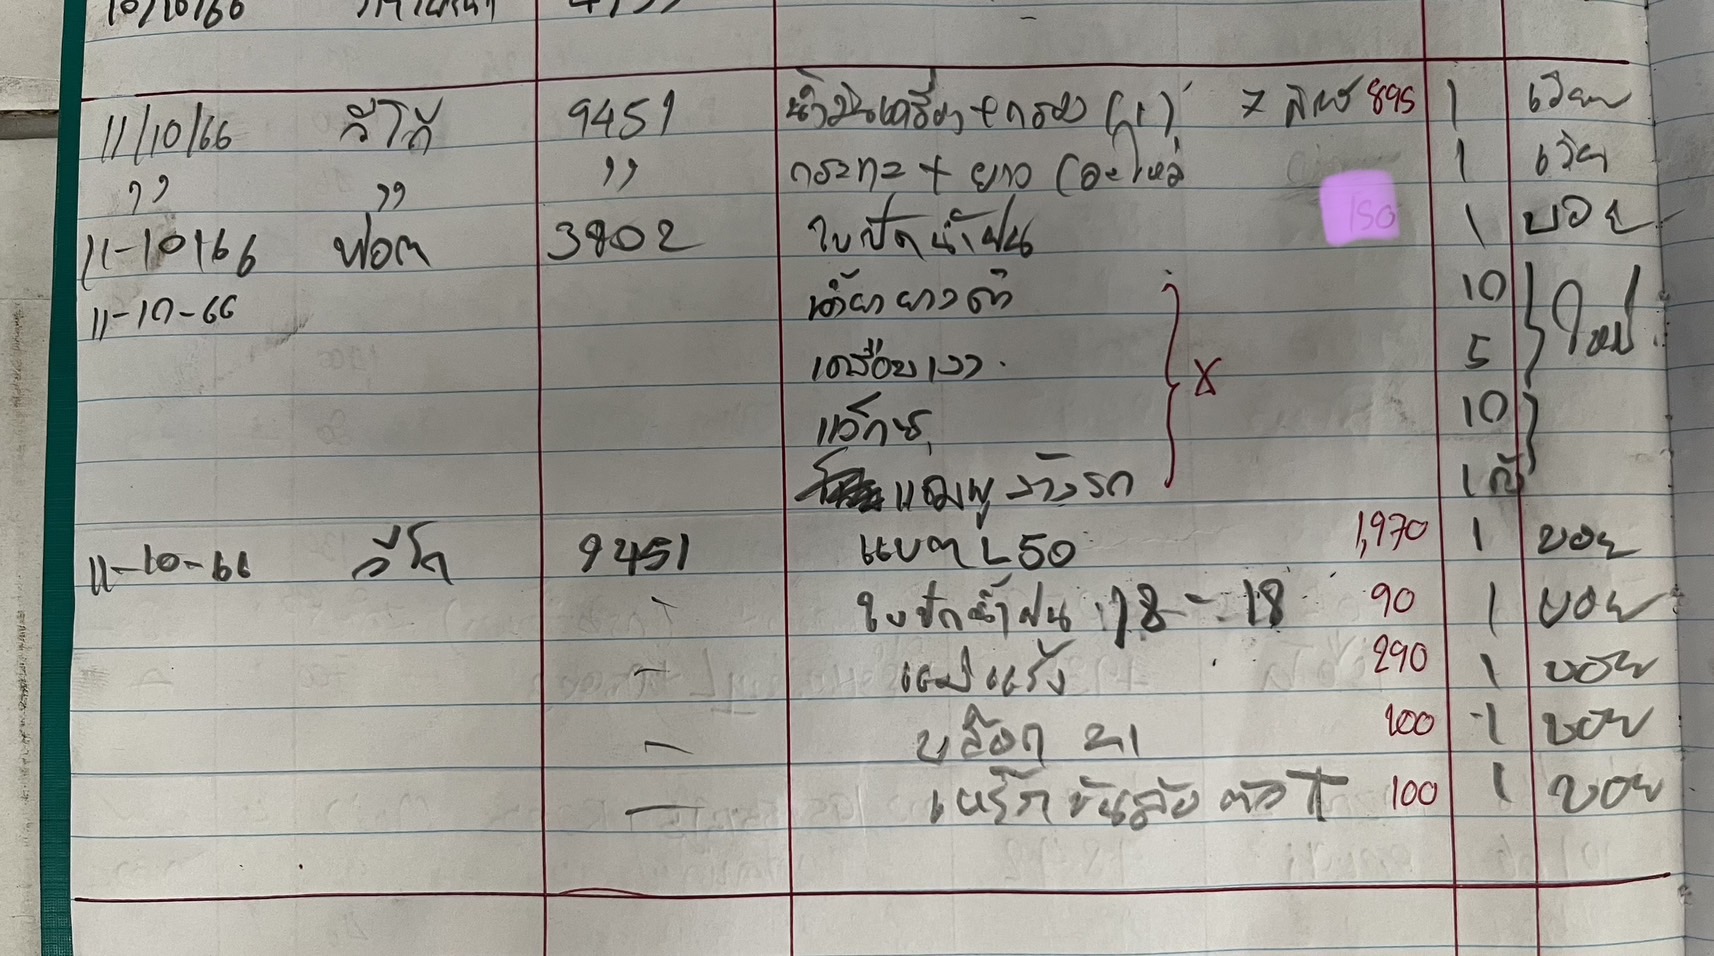 10/10/66
11/10/66 วีโก้ 9451 น้ำมันเครื่อง+กรอง (1) 7 ลิตร 895 1 เวียน
,, ,, ,, กระทะ + ยาง (อะไหล่ 1
11-10/66 ฟอต 3802 ใบปัดน้ำฝน 150 1 บอย
11-10-66 น้ำยายางดำ 10
เคลือบเงา 5
แว๊กซ์ X 10
แชมพูล้างรถ 1
11-10-66 วีโก 9451 แบต L50 1,970 1 บอย
ใบปัดน้ำฝน 18-18 90 1 บอย
- 290 1 บอย
- บล๊อก 21 100 1 บอย
- ขันล้อ ตัว T 100 1 บอย